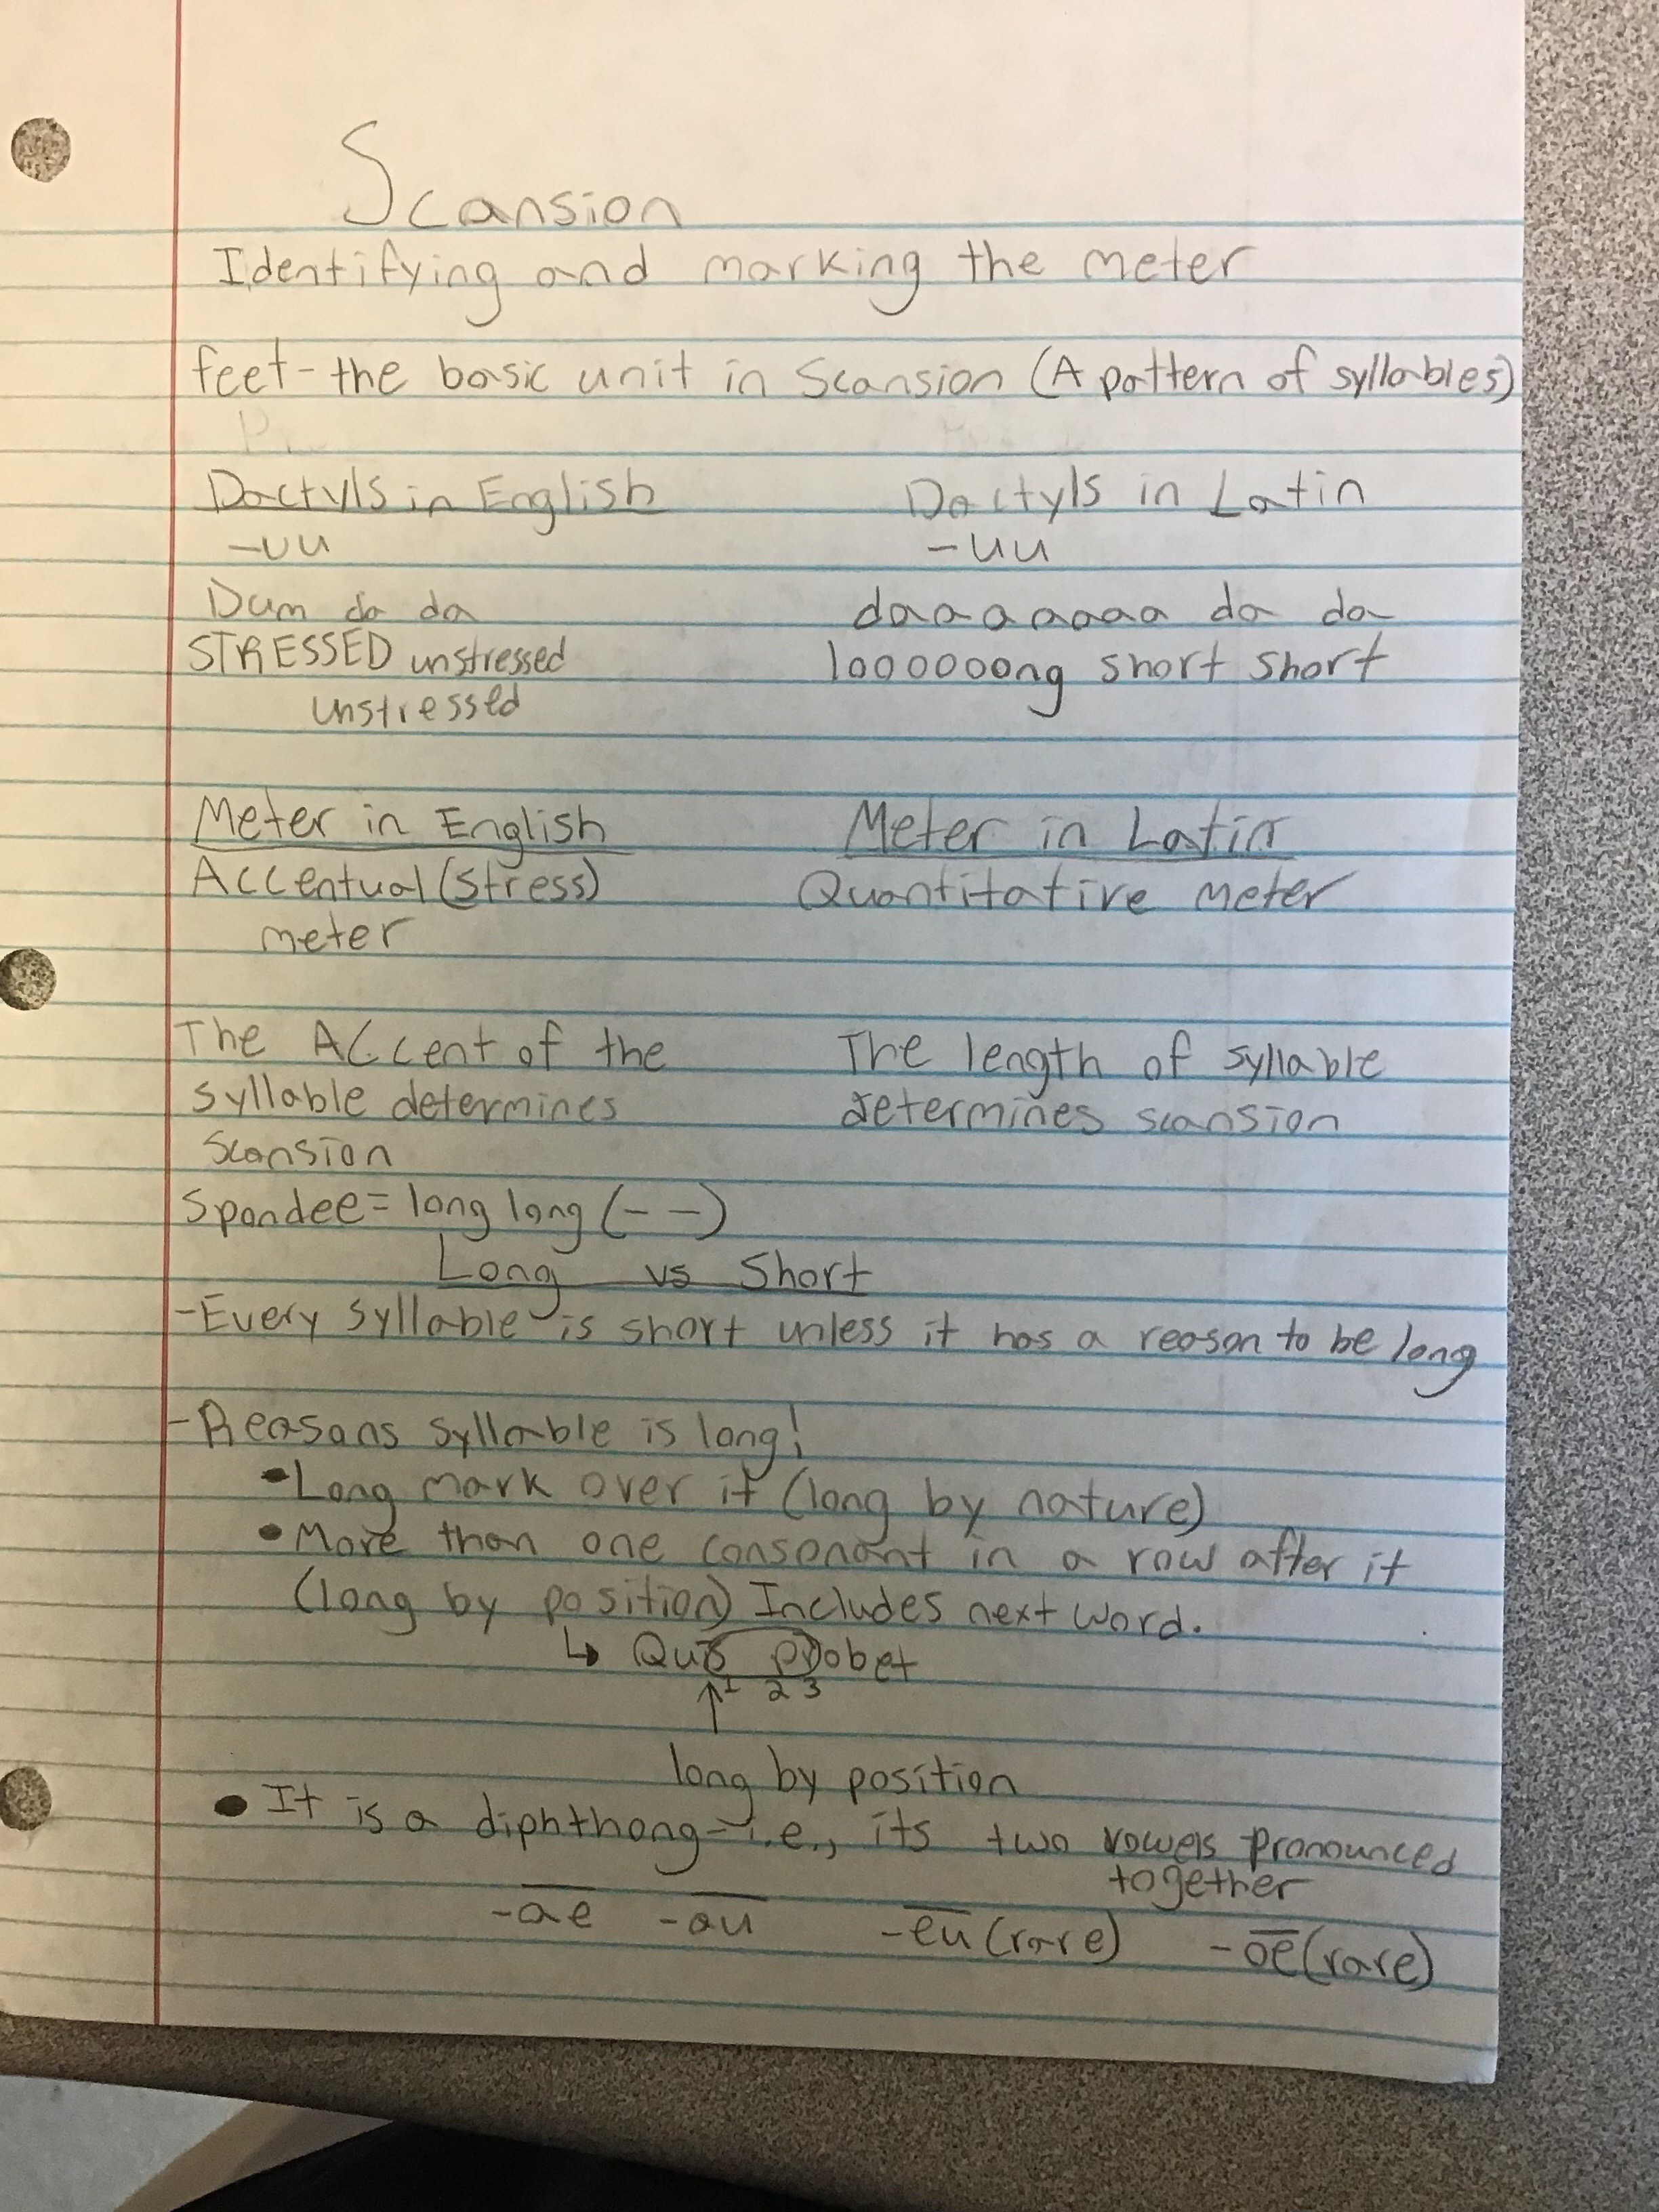 Scansion
Identifying and marking the meter
feet - the basic unit in Scansion (A pattern of syllables)
Dactyls in English
-uu
Dum da da
STRESSED unstressed
unstressed
Dactyls in Latin
-uu
daaaaaaa da da
looooooong short short
Meter in English
Accentual (stress)
meter
Meter in Latin
Quantitative meter
The Accent of the
syllable determines
scansion
The length of syllable
determines scansion
Spondee = long long (- -)
Long vs Short
- Every syllable is short unless it has a reason to be long
- Reasons syllable is long!
• Long mark over it (long by nature)
• More than one consonant in a row after it
(long by position) Includes next word.
↳ Quis probet
↑ 1 2 3
long by position
• It is a diphthong - i.e., its two vowels pronounced
together
-ae -au -eu (rare) -oe (rare)